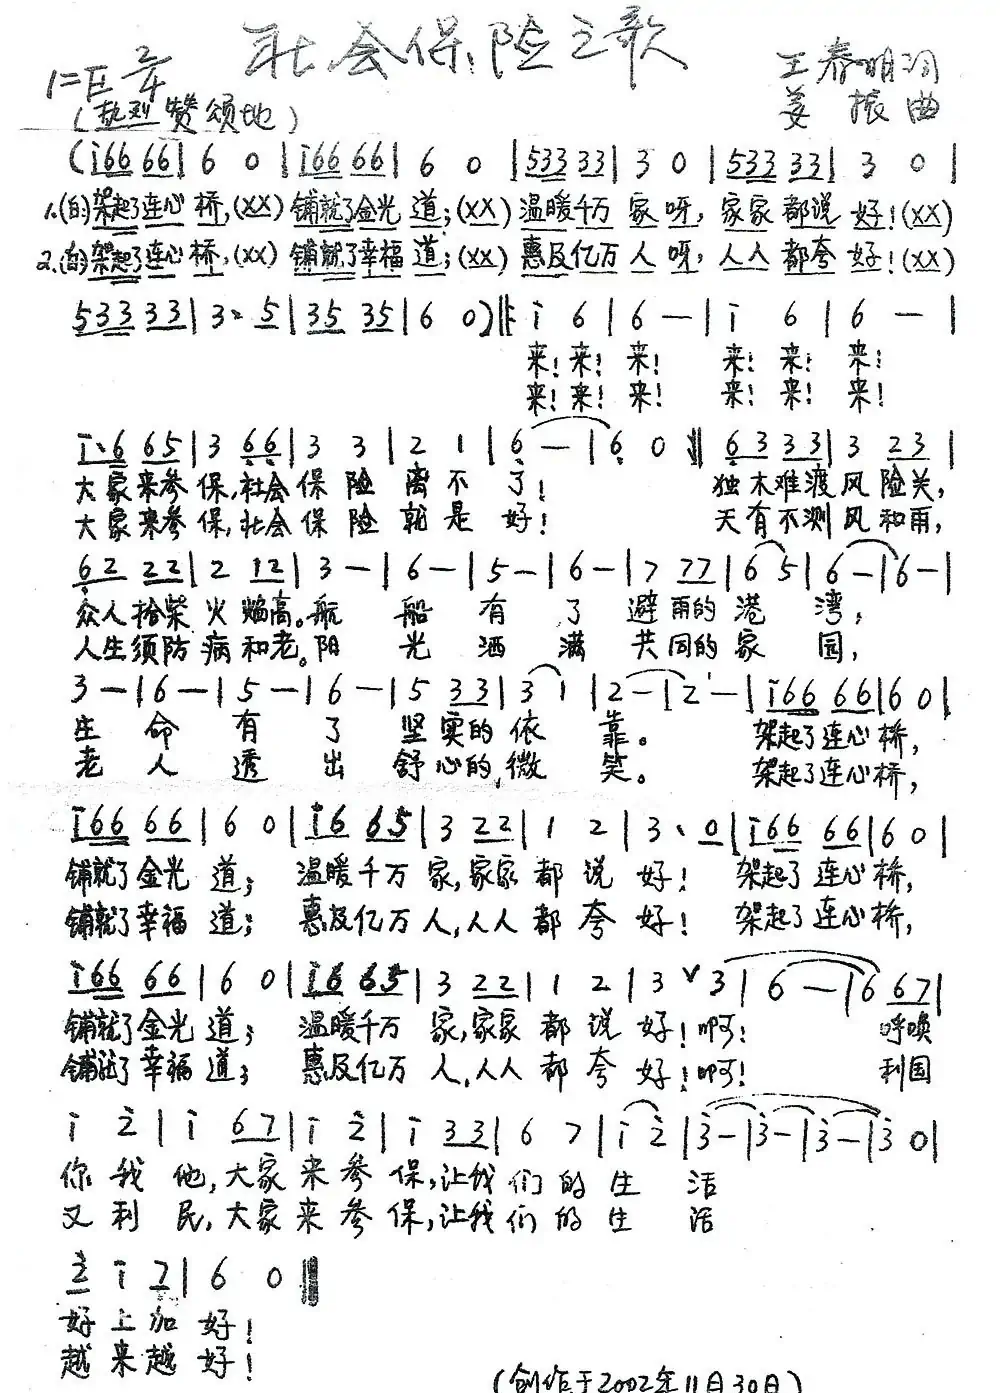 社会保险之歌
1=E 2/4
王春明词
姜振曲
(热烈 赞颂地)
(i66 66 | 6 0 | i66 66 | 6 0 | 533 33 | 3 0 | 533 33 | 3 0 |
1.(白)架起了连心桥,(XX) 铺就了金光道;(XX) 温暖千万家呀,家家都说好!(XX)
2.(白)架起了连心桥,(XX) 铺就了幸福道;(XX) 惠及亿万人呀,人人都夸好!(XX)
533 33 | 3· 5 | 35 35 | 6 0) ‖: i 6 | 6 — | i 6 | 6 — |
来!来!来! 来!来!来!
来!来!来! 来!来!来!
i·6 65 | 3 66 | 3 3 | 2 1 | 6 — | 6 0 ‖ 6333 | 3 23 |
大家来参保,社会保险离不了! 独木难渡风险关,
大家来参保,社会保险就是好! 天有不测风和雨,
62 22 | 2 12 | 3 — | 6 — | 5 — | 6 — | 7 77 | 6 5 | 6 — | 6 — |
众人拾柴火焰高。航船有了避雨的港湾,
人生须防病和老。阳光洒满共同的家园,
3 — | 6 — | 5 — | 6 — | 5 33 | 3 1 | 2 — | 2 — | i66 66 | 6 0 |
生命有了坚实的依靠。 架起了连心桥,
老人透出舒心的微笑。 架起了连心桥,
i66 66 | 6 0 | i6 65 | 3 22 | 1 2 | 3· 0 | i66 66 | 6 0 |
铺就了金光道; 温暖千万家,家家都说好! 架起了连心桥,
铺就了幸福道; 惠及亿万人,人人都夸好! 架起了连心桥,
i66 66 | 6 0 | i6 65 | 3 22 | 1 2 | 3 ∨ 3 | 6 — | 6 67 |
铺就了金光道; 温暖千万家,家家都说好!啊! 呼唤
铺就了幸福道; 惠及亿万人,人人都夸好!啊! 利国
i 2 | i 67 | i 2 | i 33 | 6 7 | i 2 | 3 — | 3 — | 3 — | 3 0 |
你我他,大家来参保,让我们的生活
又利民,大家来参保,让我们的生活
2 i 7 | 6 0 ‖
好上加好!
越来越好!
(创作于2002年11月30日)